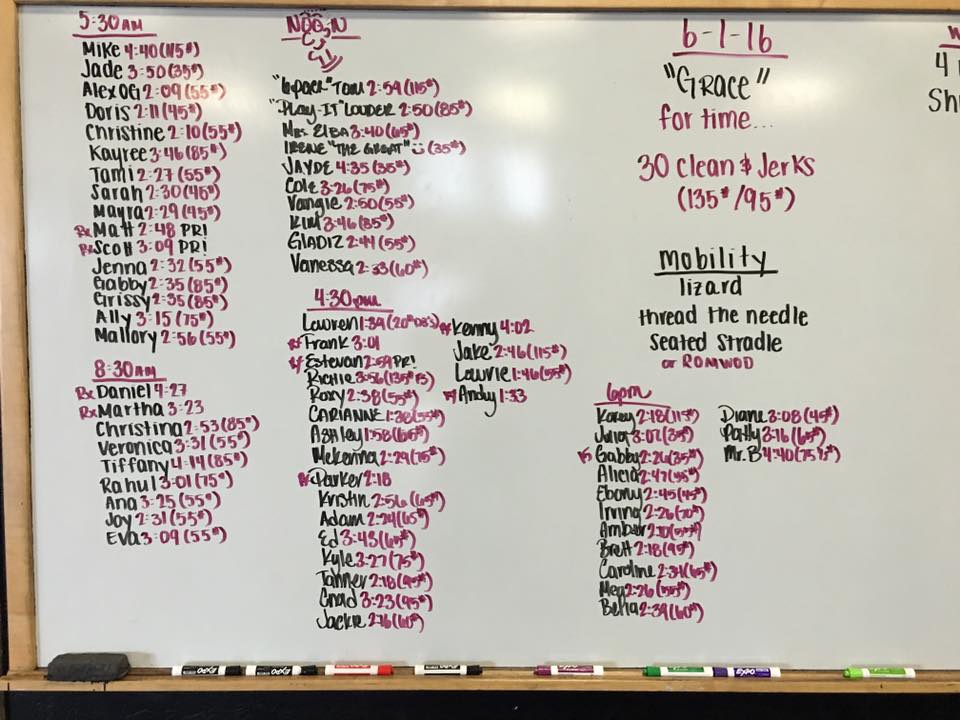 5:30AM
Mike 4:40 (115#)
Jade 3:50 (35#)
Alex OG 2:09 (55#)
Doris 2:11 (45#)
Christine 2:10 (55#)
Kayree 3:46 (85#)
Tami 2:27 (55#)
Sarah 2:30 (45#)
Mayra 2:29 (45#)
Rx Matt 2:48 PR!
Rx Scott 3:09 PR!
Jenna 2:32 (55#)
Gabby 2:35 (85#)
Crissy 2:35 (85#)
Ally 3:15 (75#)
Mallory 2:56 (55#)
8:30AM
Rx Daniel 4:27
Rx Martha 3:23
Christina 2:53 (85#)
Veronica 3:31 (55#)
Tiffany 4:14 (85#)
Rahul 3:01 (75#)
Ana 3:25 (55#)
Joy 2:31 (55#)
Eva 3:09 (55#)
NOON
"6pack" Tom 2:59 (115#)
"Play-It" Louder 2:50 (85#)
Mrs. Elba 3:40 (65#)
Irene "The Great" (35#)
Jayde 4:35 (35#)
Cole 3:26 (75#)
Vangie 2:50 (55#)
Kim 3:46 (85#)
Gladiz 2:44 (55#)
Vanessa 2:33 (60#)
4:30pm
Lauren 1:39 (20# DB's)
Rx Frank 3:01
Rx Estevan 2:59 PR!
Richie 3:56 (135#
Roxy 2:38 (55#)
Carianne 1:38 (55#)
Ashley 1:58 (65#)
McKenna 2:29 (75#)
Rx Parker 2:18
Kristin 2:56 (65#)
Adam 2:24 (65#)
Ed 3:43 (65#)
Kyle 3:27 (75#)
Tanner 2:18 (95#)
Chad 3:23 (95#)
Jackie 2:16 (60#)
Rx Kenny 4:02
Jake 2:46 (115#)
Laurie 1:46 (55#)
Rx Andy 1:33
6-1-16
"Grace"
for time...
30 Clean & Jerks
(135#/95#)
Mobility
lizard
thread the needle
Seated Straddle
or ROMWOD
6pm
Korey 2:18 (115#)
Julia 3:07 (35#)
Gabby 2:26 (35#)
Alicia 2:47 (55#)
Ebony 2:45 (45#)
Irving 2:26 (70#)
Amber 2:10 (55#)
Brett 2:18 (95#)
Caroline 2:34 (65#)
Meg 2:26 (55#)
Bella 2:39 (60#)
Diane 3:08 (45#)
Patty 3:16 (65#)
Mr. B 4:40 (75#)
W
4
Sh
EXPO
EXPO
EXPO